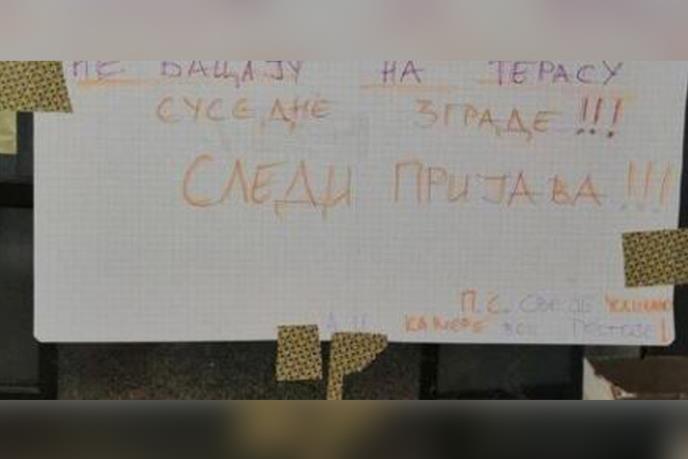 НЕ БАЦАЈУ НА ТЕРАСУ
СУСЕДНЕ ЗГРАДЕ!!!
СЛЕДИ ПРИЈАВА!!!
П.С. СВЕ ЈЕ
КАМЕРЕ ВЕЋ ПОСТОЈЕ!